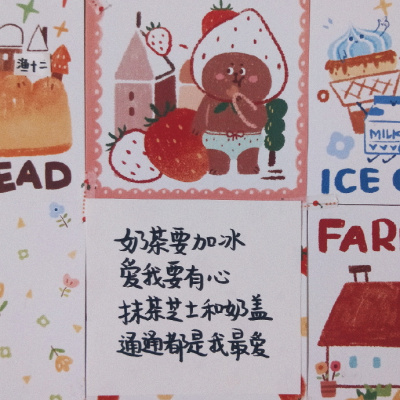 渔十二
EAD
MILK
ICE C
FAR
奶茶要加冰
爱我要有心
抹茶芝士和奶盖
通通都是我最爱